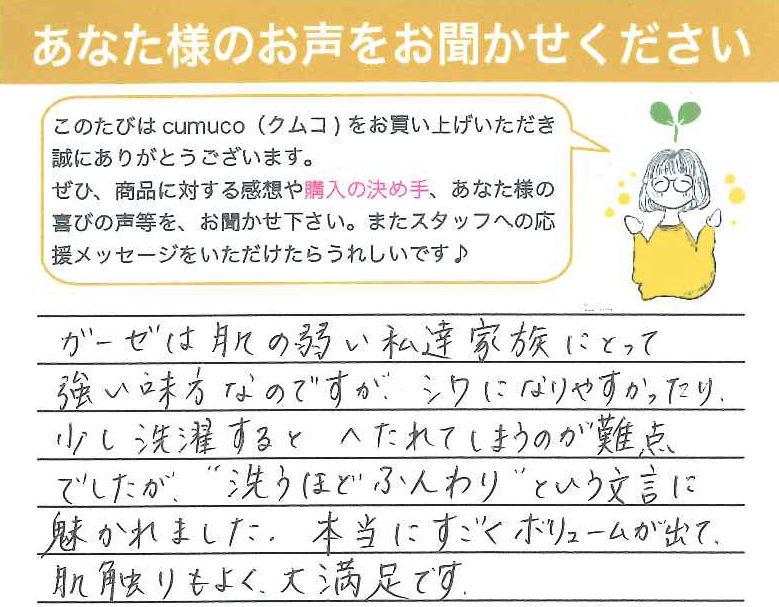 あなた様のお声をお聞かせください
このたびは cumuco（クムコ）をお買い上げいただき
誠にありがとうございます。
ぜひ、商品に対する感想や購入の決め手、あなた様の
喜びの声等を、お聞かせ下さい。またスタッフへの応
援メッセージをいただけたらうれしいです♪
ガーゼは肌の弱い私達家族にとって
強い味方なのですが、シワになりやすかったり、
少し洗濯すると へたれてしまうのが難点
でしたが、"洗うほどふんわり"という文言に
魅かれました。本当にすごくボリュームが出て、
肌触りもよく、大満足です。